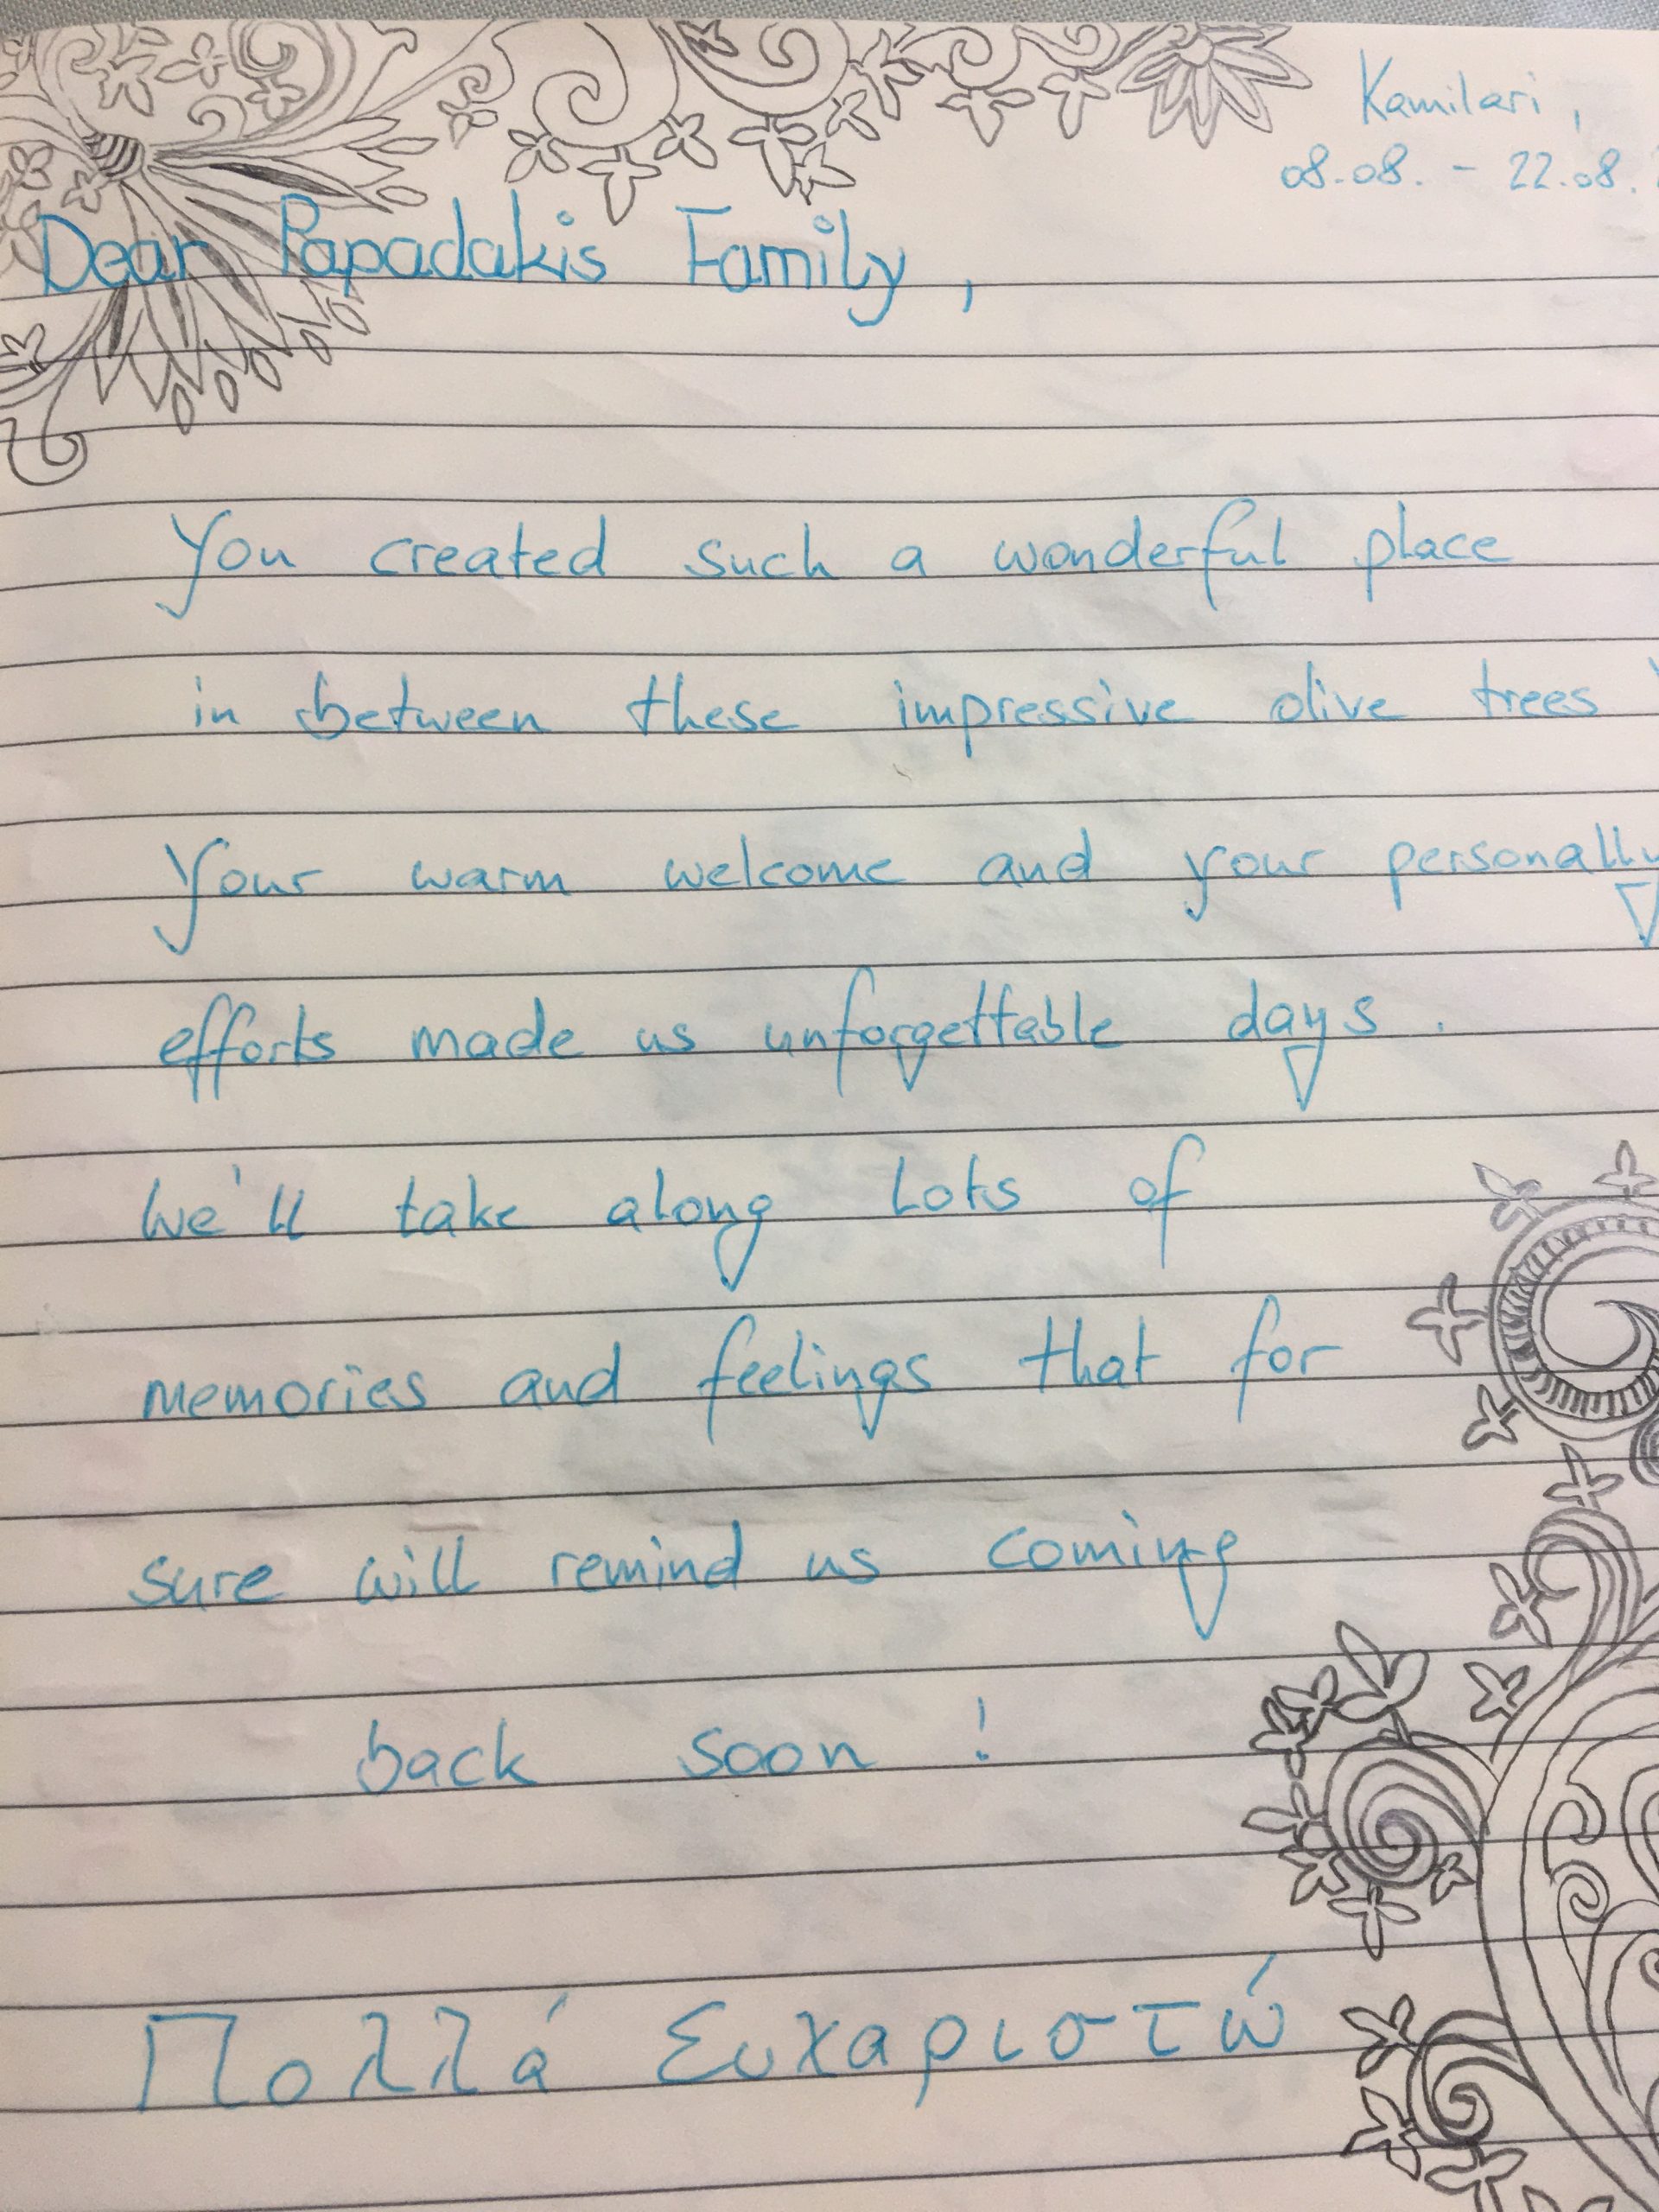 Kamilari,
08.08. - 22.08.
Dear Papadakis Family,
You created such a wonderful place
in between these impressive olive trees
Your warm welcome and your personally
efforts made us unforgettable days.
We'll take along lots of
memories and feelings that for
sure will remind us coming
back soon!
Πολλά Ευχαριστώ